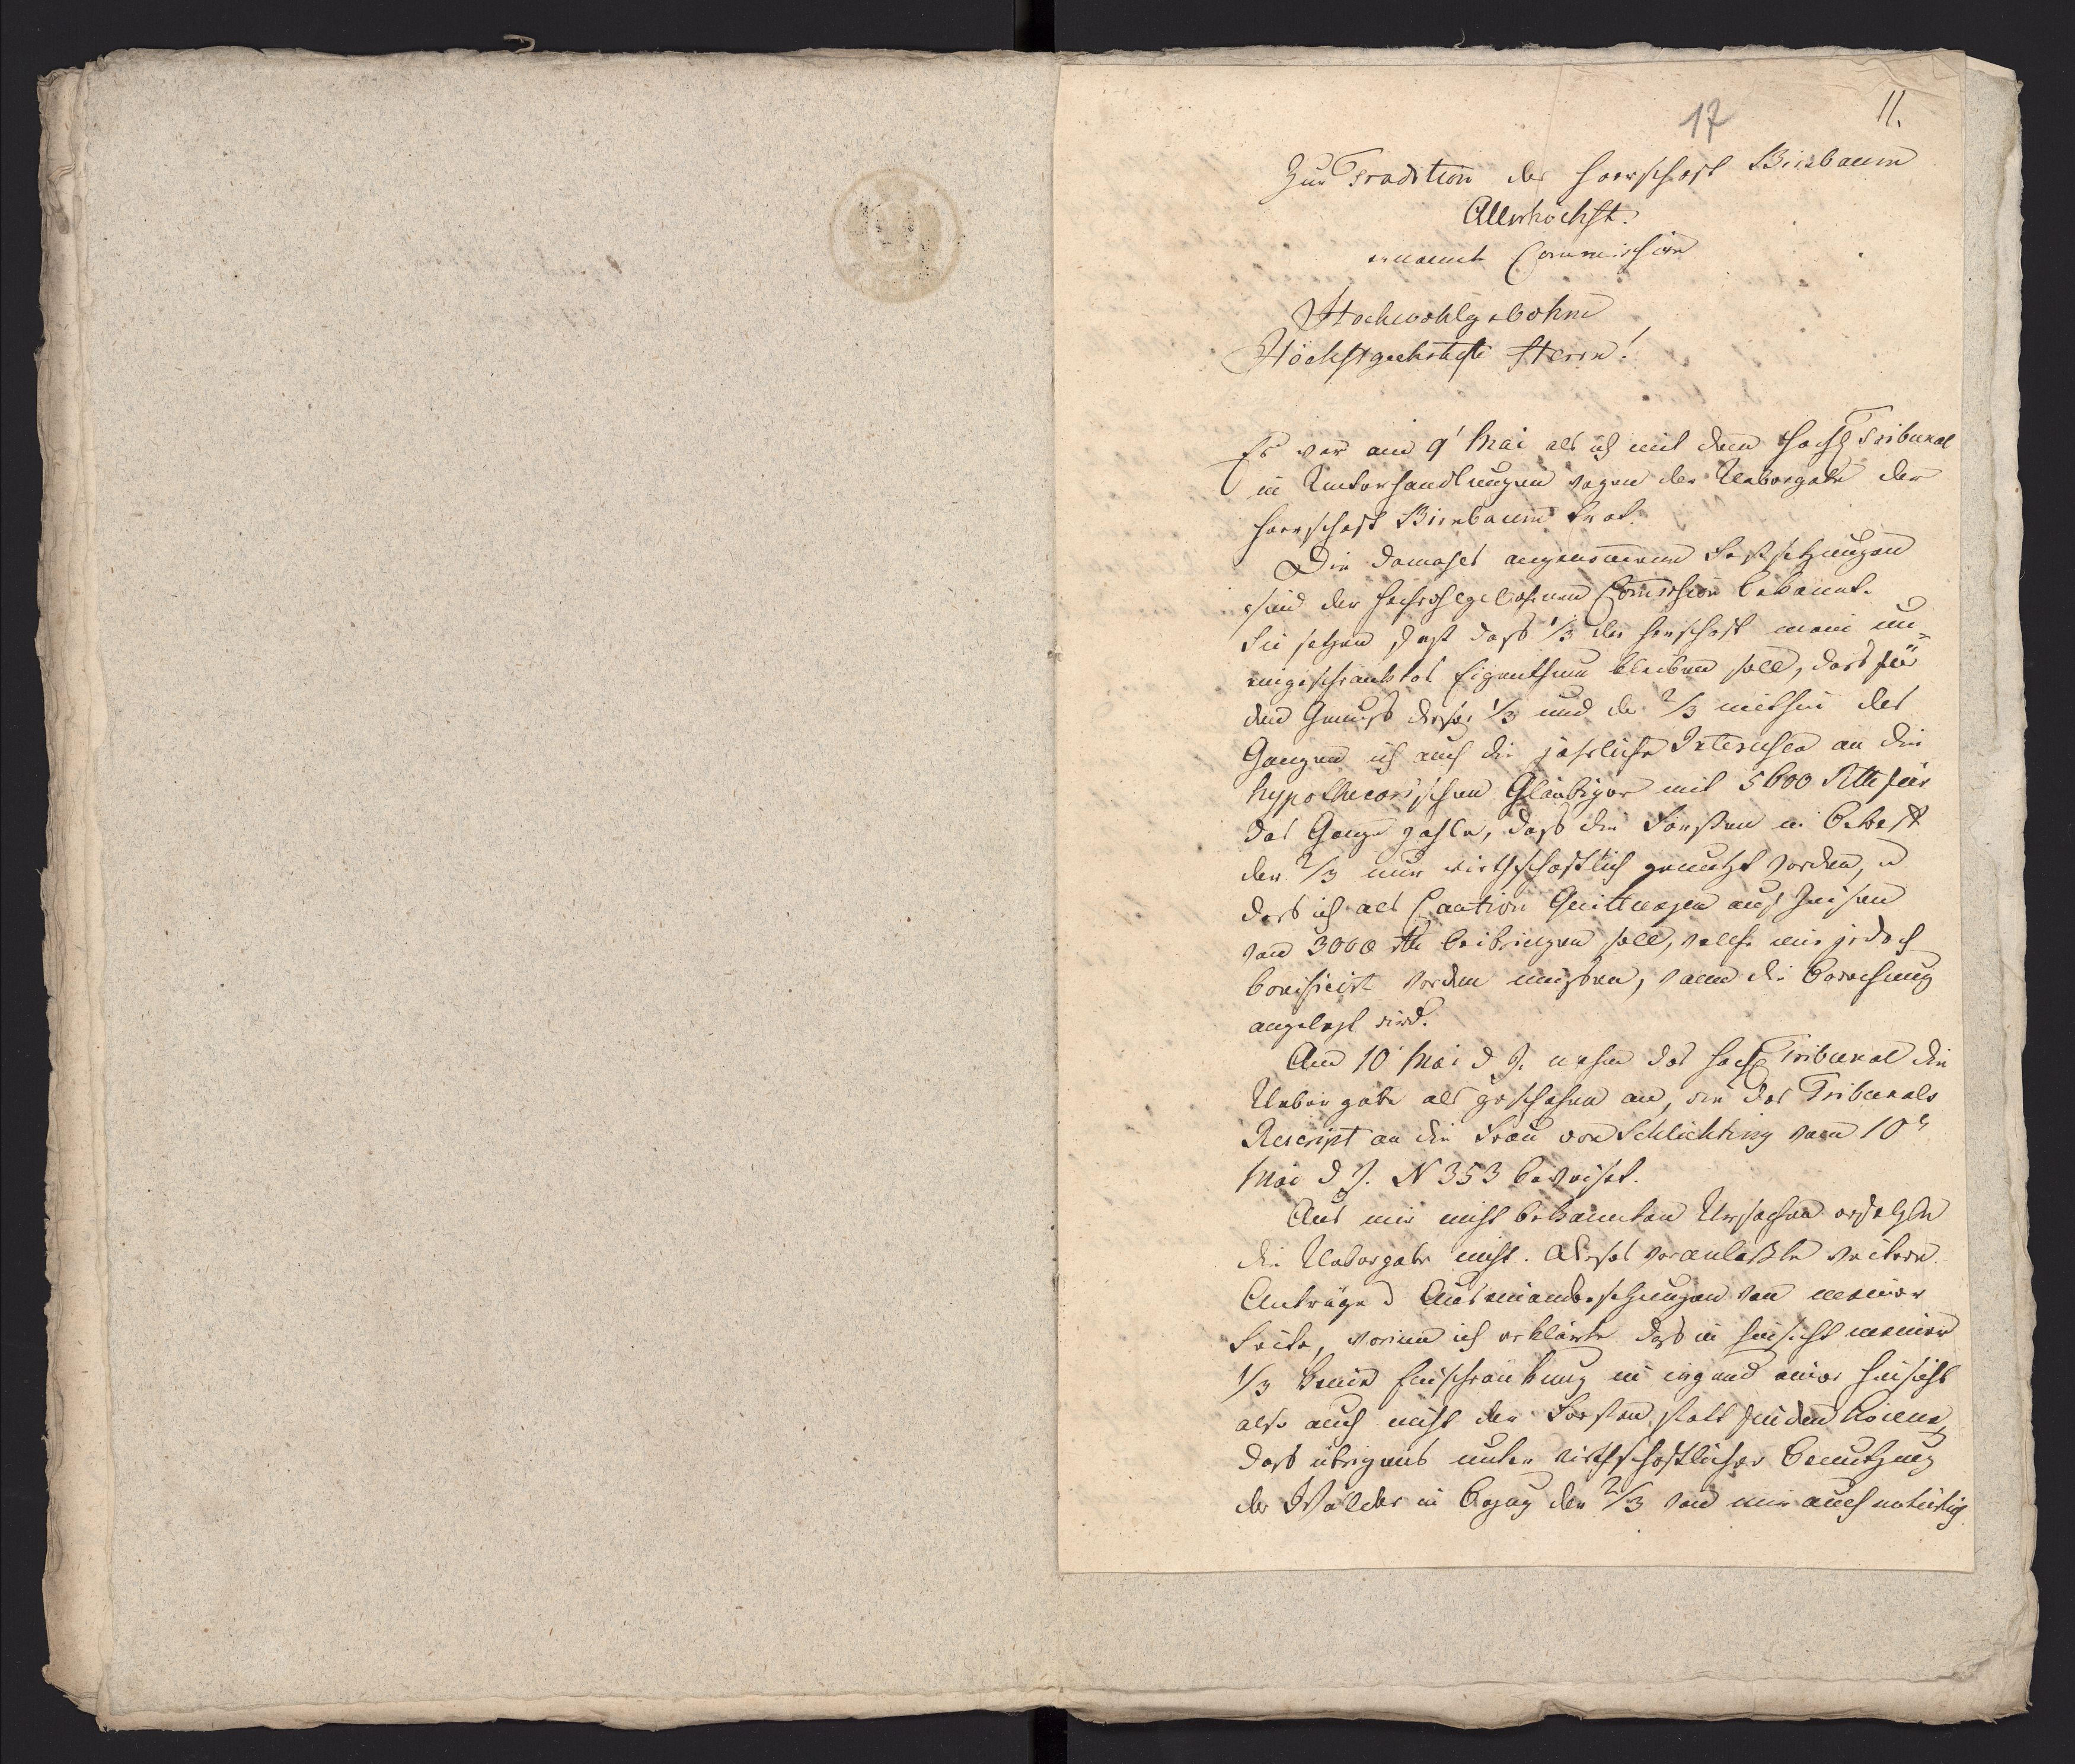 17
11.
Zur Tradition der Herrschaft Birnbaum
Allerhöchst
ernannte Commission
Hochwohlgebohrne
Höchstgeehrteste Herrn!
Es war am 9t Mai als ich mit dem Hoch Tribunal
in Unterhandlungen wegen der Uebergabe der
Herrschaft Birnbaum trat.
Die damahls angenommenen Festsetzungen
sind der Hochwohlgebohrnen Commission bekannt.
Sie setzen fest dass 1/3 der Herrschaft mein un-
eingeschränktes Eigenthum bleiben soll, dass für
den Genuss dieses 1/3 und der 2/3 mithin des
Ganzen ich auch die jährliche Interessen an die
hypothecarischen Gläubiger mit 5600 Rtl für
das Ganze zahle, dass die Forsten in Betreff
der 2/3 nur wirthschaftlich genutzt werden, u
dass ich als Caution Quittungen auf Zinsen
von 3000 rtl beibringen soll, welche mir jedoch
bonificirt werden müssen, wenn die Berechnung
angelegt wird.
Am 10 Mai d J. nahm das Hoch Tribunal die
Uebergabe als geschehen an, wie das Tribunals
Rescript an die Frau von Schlichting vom 10t
Mai d J. N 353 beweiset.
Aus mir nicht bekannten Ursachen erfolgte
die Uebergabe nicht. Dieses veranlasste weitere
Anträge u Auseinandersetzungen von meiner
Seite, worinn ich erklärte dass in Hinsicht meines
1/3 keine Einschränkung in irgend einer Hinsicht
also auch nicht der Forsten statt finden könne,
dass übrigens unter wirthschaftlicher Benutzung
der Wälder in Bezug der 2/3 von mir auch natürlich